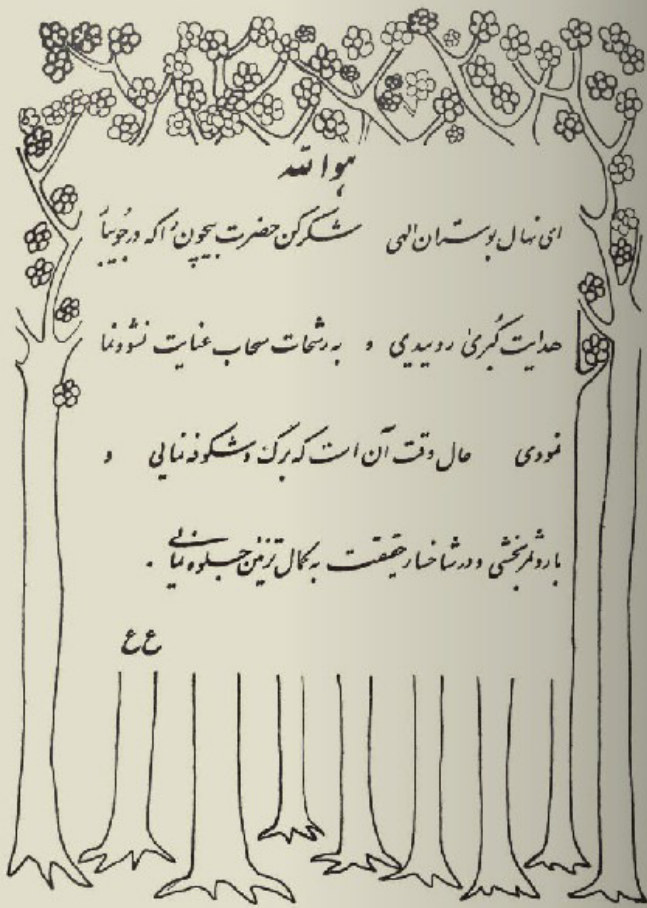 هوالله
ای نهال بوستان الهی شکر کن حضرت بیچون را که در جویبار
هدایت کبریٰ روییدی و به رشحات سحاب عنایت نشو و نما
نمودی حال وقت آن است که برگ و شکوفه نمایی و
بار و ثمر بخشی و در شاخسار حقیقت به کمال تزئین جلوه نمایی .
ع ع